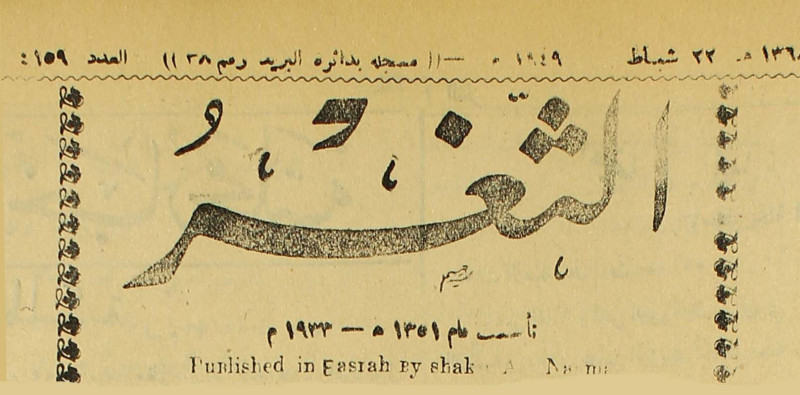 ١٣٦٨ هـ ٢٢ شباط ١٩٤٩ م —(( مسجله بدائرة البريد رقم ٣٨ )) العدد ١٥٩:
الثَّغْرُ
تأسست عام ١٣٥١ ه — ١٩٣٣ م
Published in Basrah By shak